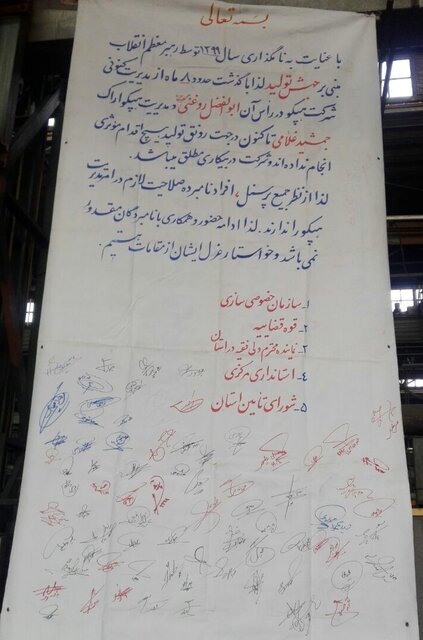 بسمه تعالی
با عنایت به نامگذاری سال ۱۳۹۹ توسط رهبر معظم انقلاب
مبنی بر جهش تولید لذا با گذشت حدود ۸ ماه از مدیریت کنونی
شرکت هپکو در رأس آن ابوالفضل روغنی و مدیریت هپکو اراک
جمشید غلامی تاکنون در جهت رونق تولید هیچ اقدام موثری
انجام نداده اند و شرکت در بیکاری مطلق میباشد.
لذا از نظر جمیع پرسنل، افراد نامبرده صلاحیت لازم در امر مدیریت
هپکو را ندارند. لذا ادامه حضور و همکاری با نامبردگان مقدور
نمی باشد و خواستار عزل ایشان از مقامات هستیم.
۱ـ سازمان خصوصی سازی
۲ـ قوه قضاییه
۳ـ نماینده محترم ولی فقیه در استان
۴ـ استانداری مرکزی
۵ـ شورای تامین استان